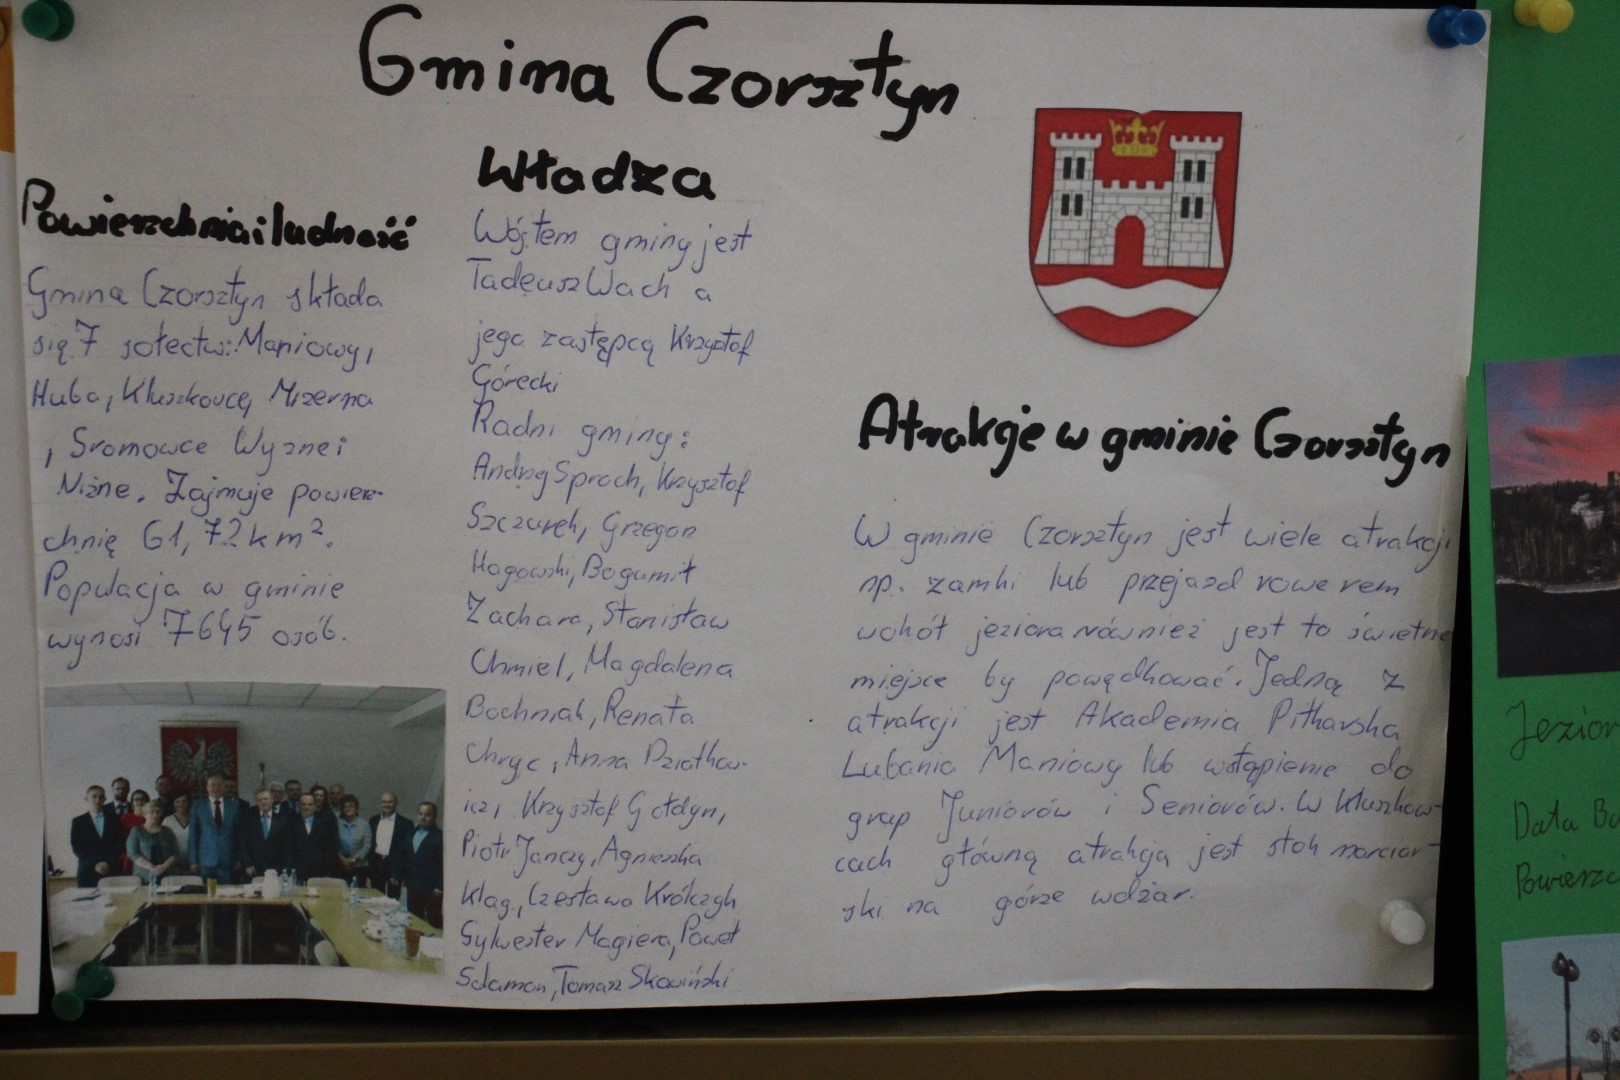 Gmina Czorsztyn
Powierzchnia i ludność
Gmina Czorsztyn składa
się 7 sołectw: Maniowy,
Huba, Kluszkowce, Mizerna
, Sromowce Wyżne i
Niżne. Zajmuje powierz-
chnię 61,72 km².
Populacja w gminie
wynosi 7645 osób.
Władza
Wójtem gminy jest
Tadeusz Wach a
jego zastępcą Krzysztof
Górecki
Radni gminy:
Andrzej Sproch, Krzysztof
Szczurek, Grzegorz
Hagowski, Bogumił
Zachara, Stanisław
Chmiel, Magdalena
Bochniak, Renata
Chryc, Anna Działkow-
icz, Krzysztof Gołdyn,
Piotr Janczy, Agnieszka
Klag, Czesława Królczyk
Sylwester Magiera, Paweł
Salamon, Tomasz Skawiński
Atrakcje w gminie Czorsztyn
W gminie Czorsztyn jest wiele atrakcji
np. zamki lub przejazd rowerem
wokół jeziora również jest to świetne
miejsce by powędkować. Jedną z
atrakcji jest Akademia Piłkarska
Lubania Maniowy lub wstąpienie do
grup Juniorów i Seniorów. W Kluszkow-
cach główną atrakcją jest stok narciar-
ski na górze wdżar.
Jezior
Data Bu
Powierzc